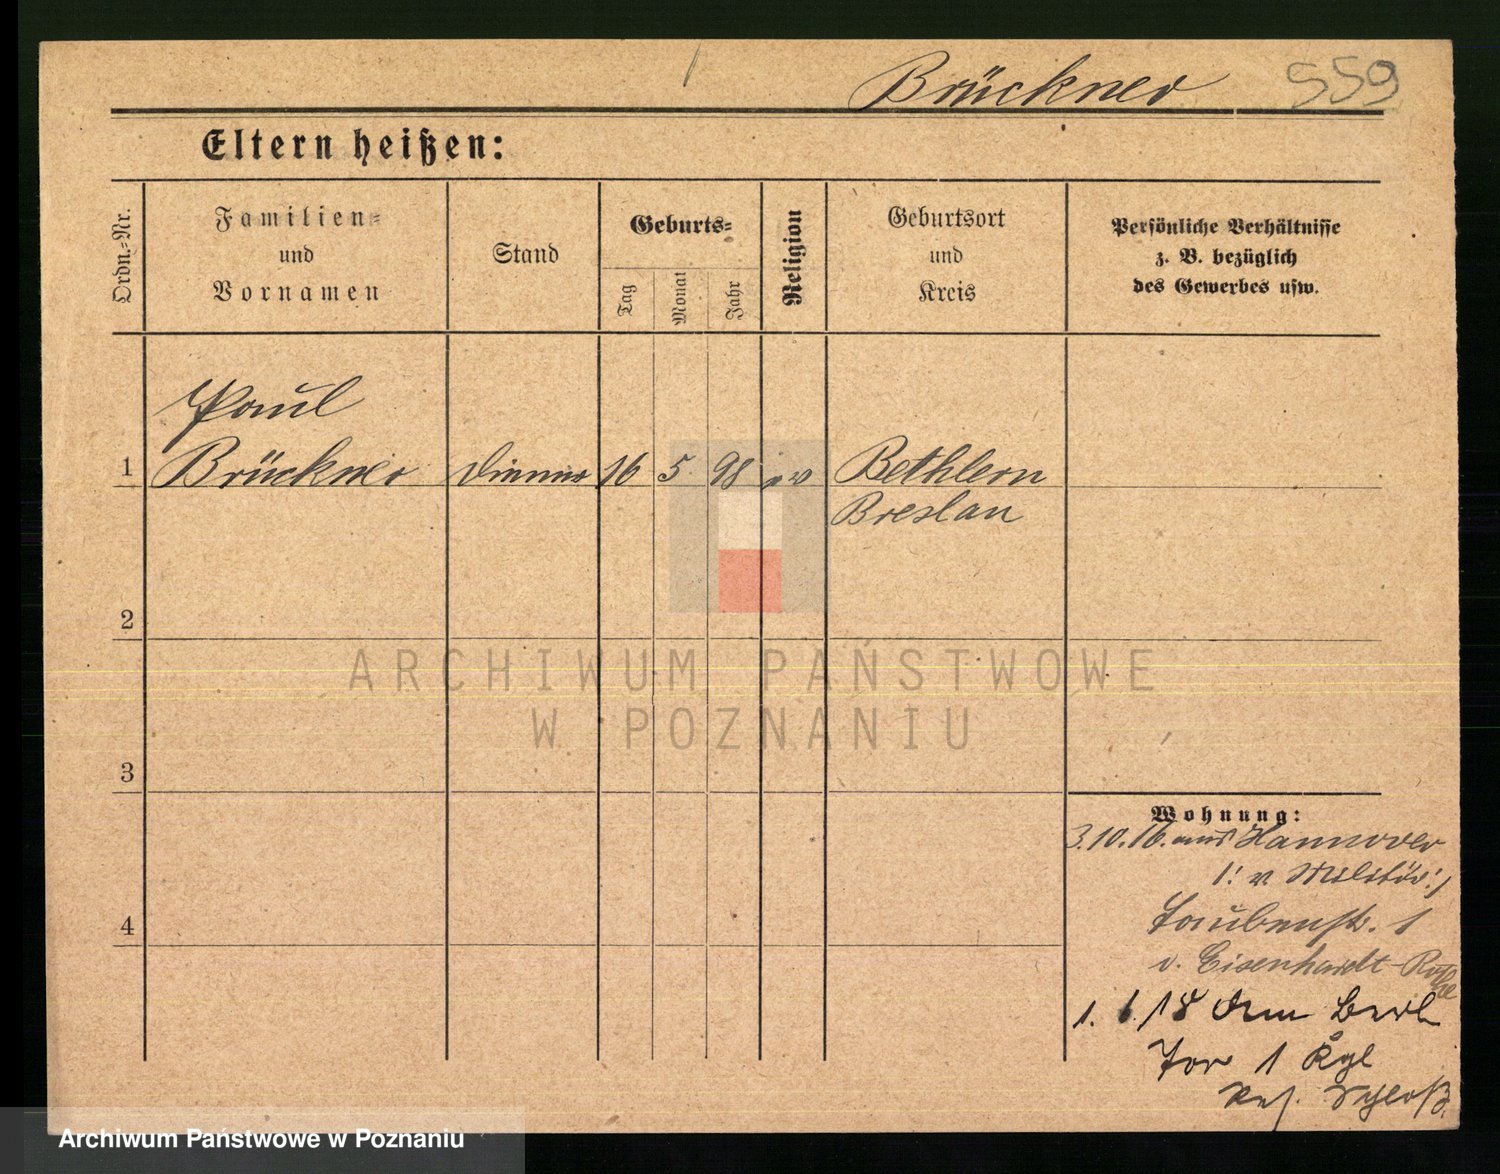 Brückner 559
Eltern heißen:
Ordn.-Nr.
Familien-
und
Vornamen
Stand
Geburts-
Tag
Monat
Jahr
Religion
Geburtsort
und
Kreis
Persönliche Verhältnisse
z. B. bezüglich
des Gewerbes usw.
Paul
1 Brückner Diener 16 5 98 ev Bethlem
Breslau
2
3
4
ARCHIWUM PAŃSTWOWE
W POZNANIU
Wohnung:
3.10.16. aus Hannover
/: v Militär :/
Taubenstr. 1
v. Eisenhardt-Rothe
1. 6. 18 Am Berl
Tor 1 Kgl
Res. Schloß.
Archiwum Państwowe w Poznaniu